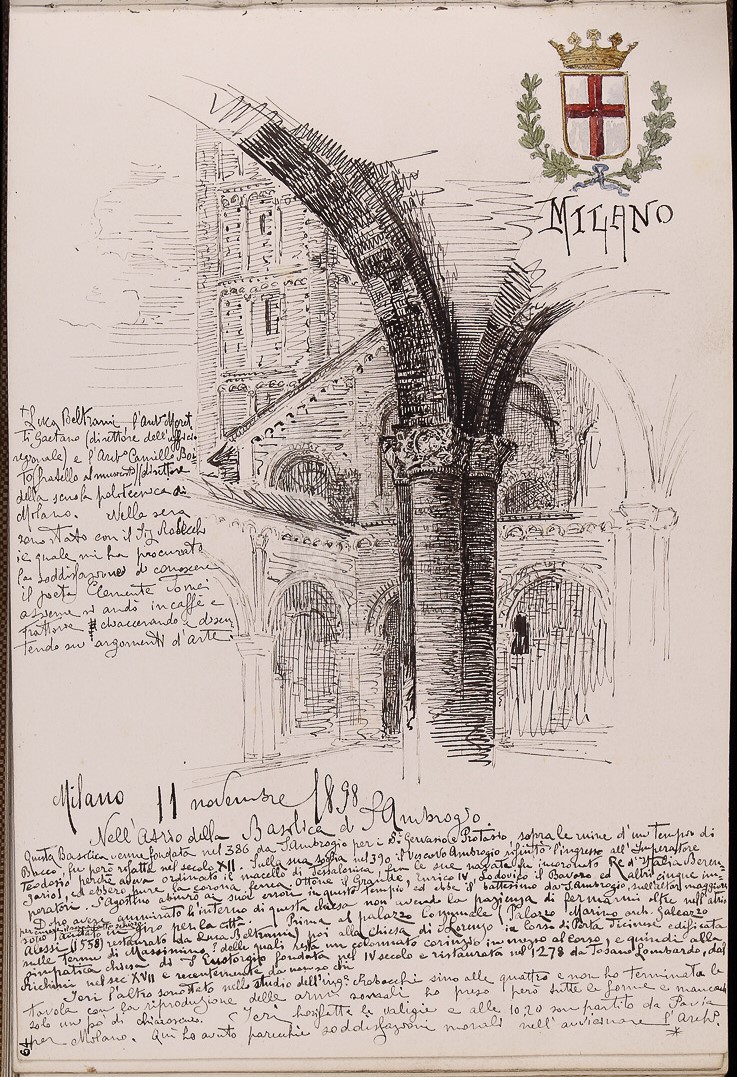 MILANO
* Luca Beltrami, l'Arch. Moret
ti Gaetano (direttore dell'ufficio
regionale) e l'Arch. Camillo Boi
to fratello al musicista/direttore
della scuola politecnica di
Milano. Nella sera
sono stato con il Sig. Robecchi
il quale mi ha procurato
la soddisfazione di conoscere
il poeta Clemente
assieme si andò in caffè e
trattorie chiaccerando e discu
tendo su argomenti d'arte.
Milano 11 novembre 1898
Nell'Atrio della Basilica di S. Ambrogio.
Questa Basilica venne fondata nel 386 da S. Ambrogio per i S.i Gervasio e Protasio, sopra le ruine d'un tempio di
Bacco, fu però rifatta nel secolo XII. Sulla sua soglia nel 390 il Vescovo Ambrogio rifiutò l'ingresso all'Imperatore
Teodosio perchè aveva ordinato il macello di Tessalonica, tra le sue navate fu incoronato Re d'Italia Beren
gario I, ed ebbero pure la corona ferrea Ottone il Grande, Enrico IV, Lodovico il Bavaro ed altri cinque im-
peratori. S. Agostino abiurò ai suoi errori in questo tempio, ed ebbe il battesimo da S. Ambrogio, sull'altar maggiore
Dopo avere ammirato l'interno di questa chiesa non avendo la pazienza di fermarmi oltre nell'atrio
sono andato in giro per la città. Prima al palazzo Comunale (Palazzo Marino arch. Galeazzo
Alessi (1558) restaurato da Luca Beltrami) poi alla chiesa di S. Lorenzo in Corso di Porta Ticinese edificata
sulle terme di Massimino? delle quali resta un colonnato corinzio in mezzo al corso, e quindi alla
simpatica chiesa di S. Eustorgio fondata nel IV secolo e restaurata nel 1278 da Tosano Lombardo, dal
Richini nel sec XVII e recentemente da non so chi
Jeri l'altro sono stato nello studio dell'ing. Robecchi sino alle quattro e non ho terminata la
tavola con la riproduzione delle armi sociali. ho preso però tutte le forme e mancava
solo un pò di chiaroscuro. Jeri ho rifatte le valigie e alle 10.20 son partito da Pavia
per Milano. Qui ho avuto parecchie soddisfazioni morali nell'avvicinare l'Arch.
*
64